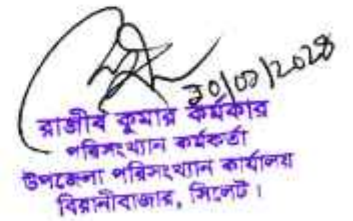 ৩০/০৩/২০২৪
রাজীব কুমার কর্মকার
পরিসংখ্যান কর্মকর্তা
উপজেলা পরিসংখ্যান কার্যালয়
বিয়ানীবাজার, সিলেট।